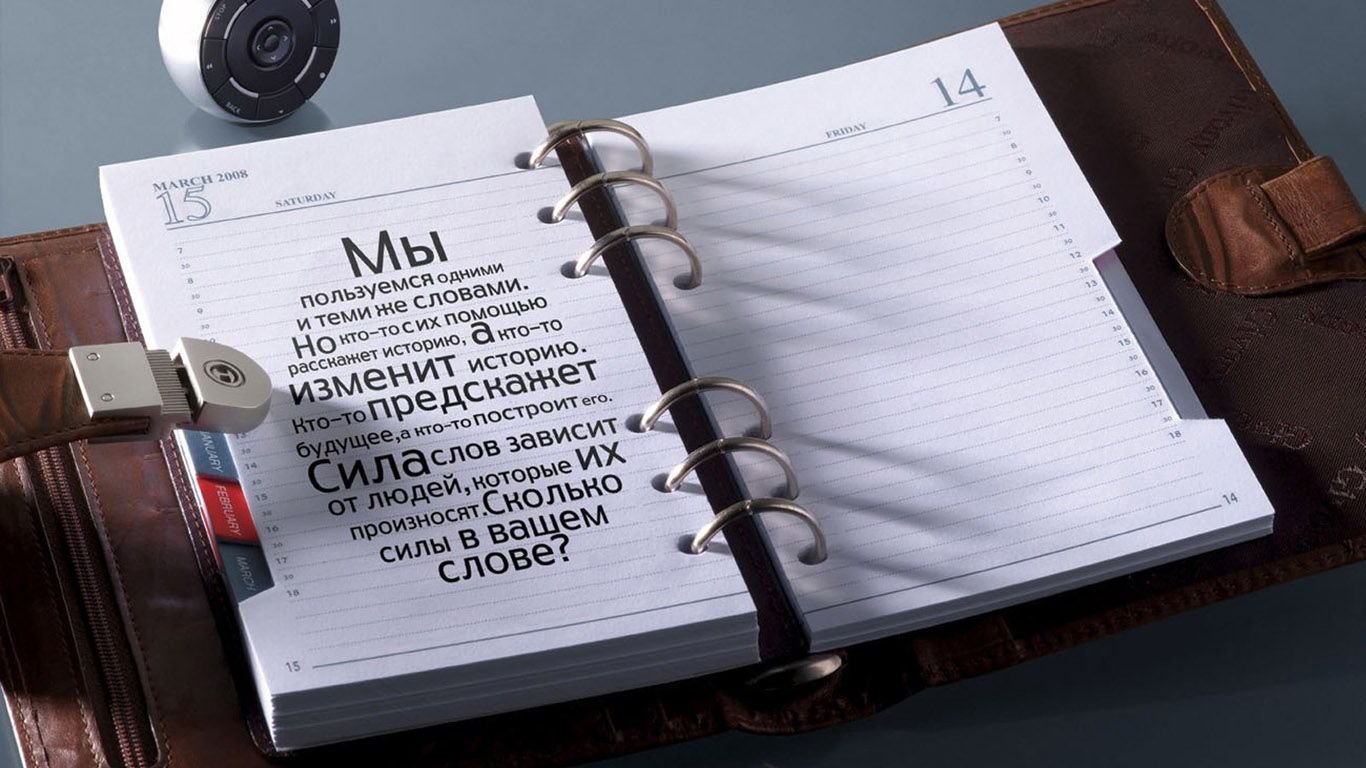 STOP
BACK
MARCH 2008
15
SATURDAY
7
30
8
30
9
30
Мы
пользуемся одними
и теми же словами.
Но кто-то с их помощью
расскажет историю, а кто-то
изменит историю.
Кто-то предскажет
будущее, а кто-то построит его.
Сила слов зависит
от людей, которые их
произносят. Сколько
силы в вашем
слове?
13
30
14
30
15
30
16
30
17
30
18
JANUARY
FEBRUARY
MARCH
15
14
FRIDAY
7
30
8
30
9
30
10
30
11
30
12
30
13
30
14
30
15
30
16
30
17
30
18
14